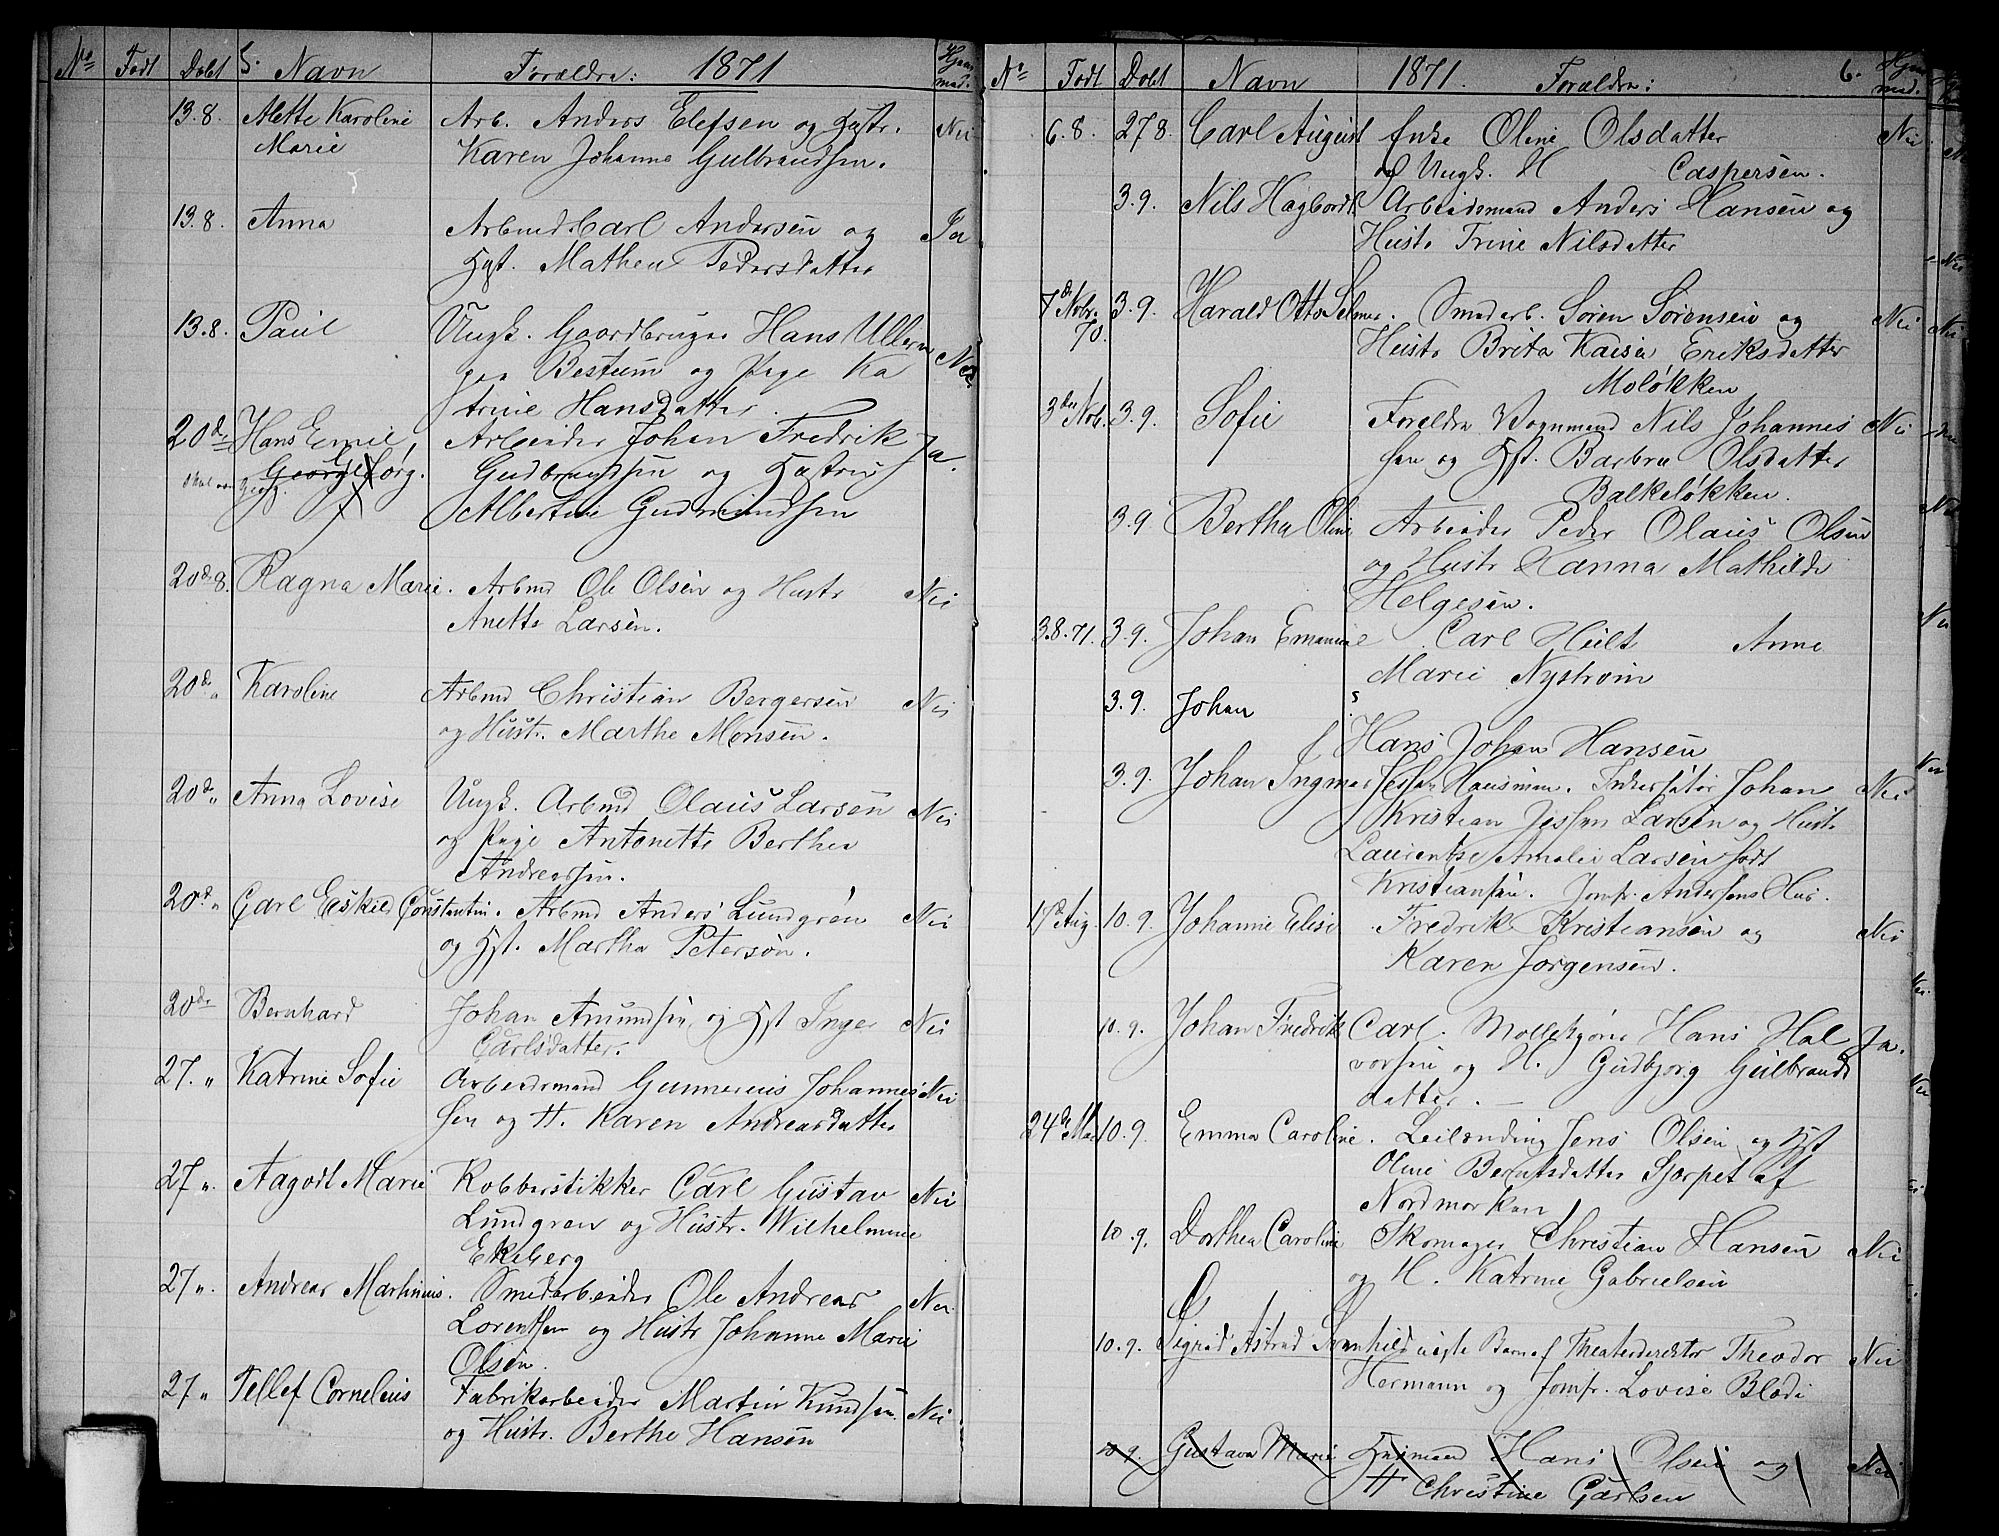 No Født Døbt 5. Navn Forældre: 1871 Hjem mad.
13.8. Alette Karoline Arb. Anders Elefsen og Hustr. Nei
Marie Karen Johanne Gulbrandsen.
13.8. Anna Arbmd Carl Andersen og Ja
Hust. Mathea Pedersdatter
13.8. Paul Ungk. Gaardbruger Hans Ullern Nei
paa Bestum og Pige Ka
trine Hansdatter.
20de Hans Emil Arbeider Johan Fredrik Ja.
Georg Jørg. Gudbrandsen og Hustru
skal være Georg. Albertine Gudmundsen
20de 8. Ragna Marie. Arbmd Ole Olsen og Hustr Nei
Anette Larsen.
20de " Karoline Arbmd Christian Bergersen Nei
og Hustr. Marthe Monsen.
20de " Anna Lovise Ungk. Arbmd Olaus Larsen Nei
og Pige Antonette Berthea
Andreassen.
20de " Carl Eskild Constantin. Arbmd Anders Lundgren Nei
og Hst. Martha Peterson.
20de Bernhard Johan Amundsen og Hst Inger Nei
Carlsdatter.
27. " Katrine Sofie Arbeidsmand Gunnerius Johannes Nei
sen og H. Karen Andreasdatter
27 ". Aagodt Marie Kobberstikker Carl Gustav Nei
Lundgren og Hustr. Wilhelmine
Ekeberg
27 ". Andreas Martinius. Smedarbeider Ole Andreas Nei
Lorentsen og Hustr Johanne Marie
Olsen.
27 " Tellef Cornelius Fabrikarbeider Martin Knudsen Nei
og Hustr. Berthe Hansen
No Født Døbt Navn 1871. Forældre: 6. Hjem mad.
6.8. 27 8. Carl August Enke Oline Olsdatter Nei
og Ungk. H Caspersen.
3.9. Nils Hagbordt Arbeidsmand Anders Hansen og
Hustr Trine Nilsdatter
7de Nobr. 70. 3.9. Harald Otto Selmer. Smedarb. Søren Sørensen og Nei
Hustr Brita Kaisa Eriksdatter
Moløkken
3die Nob. 3.9. Sofie Forældre Vognmand Nils Johannes Nei
sen og Hst. Barbra Olsdatter
Balkeløkken.
3.9. Bertha Oline Arbeider Peder Olaus Olsen
og Hustr Hanna Mathilde
Helgesen.
3.8.71. 3.9. Johan Emanuel Carl Hult Anne
Marie Nystrøm
3.9. Johan
Hans Johan Hansen
3.9. Johan Ingmar Jessen Hausman. Johan Nei
Kristian Jessen Larsen og Hustr
Laurentze Amalie Larsen født
Kristiansen. Jomfr. Andersens Hus.
17de Aug. 10.9. Johanne Elise Fredrik Kristiansen og Nei
Karen Jørgensen.
10.9. Johan Fredrik Carl. Møllekjører Hans Hal Ja.
vorsen og H. Gudbjørg Gulbrands
datter. —
24de Mai 10.9. Emma Caroline. Leilænding Jens Olsen og Hst
Oline Berntsdatter Sjørpet af
Nordmarken
10.9. Dorthea Caroline Skomager Christian Hansen Nei
og H. Katrine Gabrielsen
10.9. Sigrid Astrid Svanhild uægte Barn af Theaterdirektør Theodor Nei
Hermann og Jomfr. Lovise Blødi
10.9. Gustava Marie Husmand Hans Olsen og Nei
H Christine Carlsen